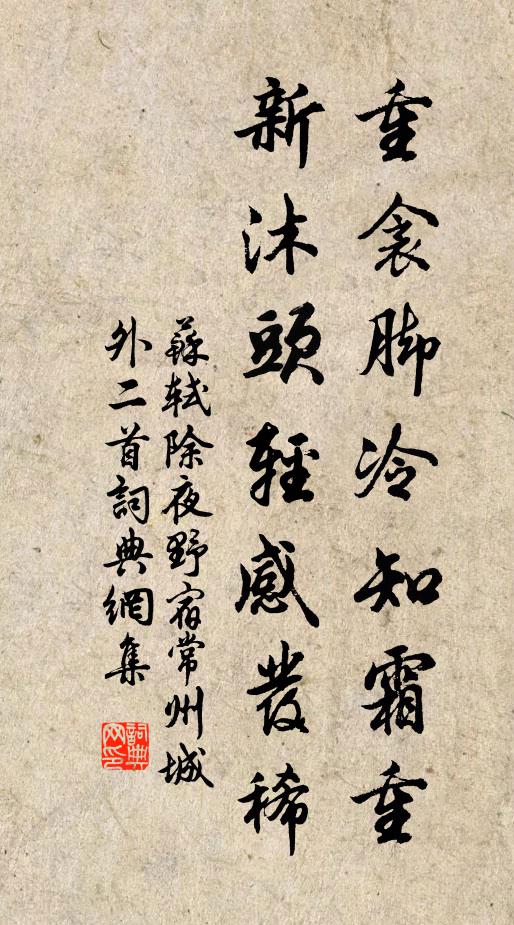 重衾脚冷知霜重
新沐頭輕感發稀
蘇軾除夜野宿常州城
外二首詞典網集
詞典
网印